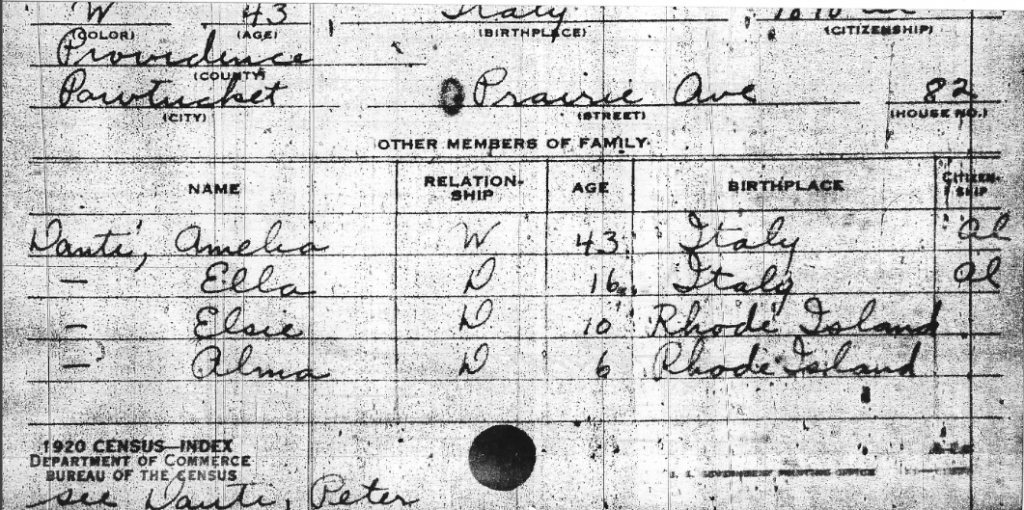 W 43 Italy
(COLOR) (AGE) (BIRTHPLACE) (CITIZENSHIP)
Providence
(COUNTY)
Pawtucket Prairie Ave 82
(CITY) (STREET) (HOUSE NO.)
OTHER MEMBERS OF FAMILY
NAME RELATION-SHIP AGE BIRTHPLACE CITIZEN-SHIP
Danti, Amelia W 43 Italy al
— Ella D 16 Italy al
— Elsie D 10 Rhode Island
— Alma D 6 Rhode Island
1920 CENSUS—INDEX
DEPARTMENT OF COMMERCE
BUREAU OF THE CENSUS
U. S. GOVERNMENT PRINTING OFFICE
see Danti, Peter